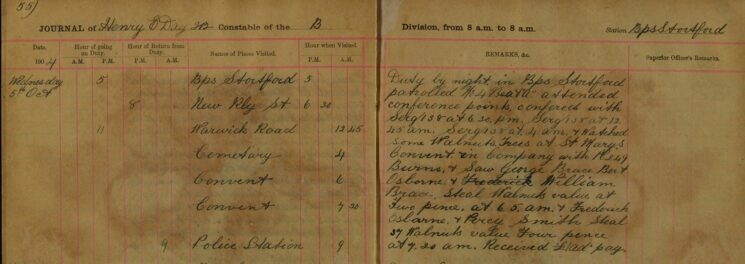 55)
JOURNAL of Henry Day Constable of the B
Division, from 8 a.m. to 8 a.m. Station Bps Stortford
Date. Hour of going on Duty. Hour of Return from Duty. Names of Places Visited. Hour when Visited. REMARKS, &c. Superior Officer's Remarks.
1904 A.M. P.M. P.M. A.M. P.M. A.M.
Wednesday 5 Bps Stortford 5
5th Oct
8 New Rly St 6 30
11 Warwick Road 12 45
Cemetary 4
Convent 6
Convent 7 20
9 Police Station 9
Duty by night in Bps Stortford
patrolled No 4 Beat "A" attended
conference points, confered with
Serg 138 at 6.30 pm. Serg 138 at 12.
45 am. Serg 138 at 4 am. & Watched
some Walnuts Trees at St Mary,s
Convent in Company with
Burns, & Saw George Brace Bert
Osborne & William
Brace, Steal Walnuts value at
Two pence, at 6.5 am. & Frederick
Osborne, & Percy Smith Steal
37 Walnuts value Four pence
at 7.20 am. Received pay